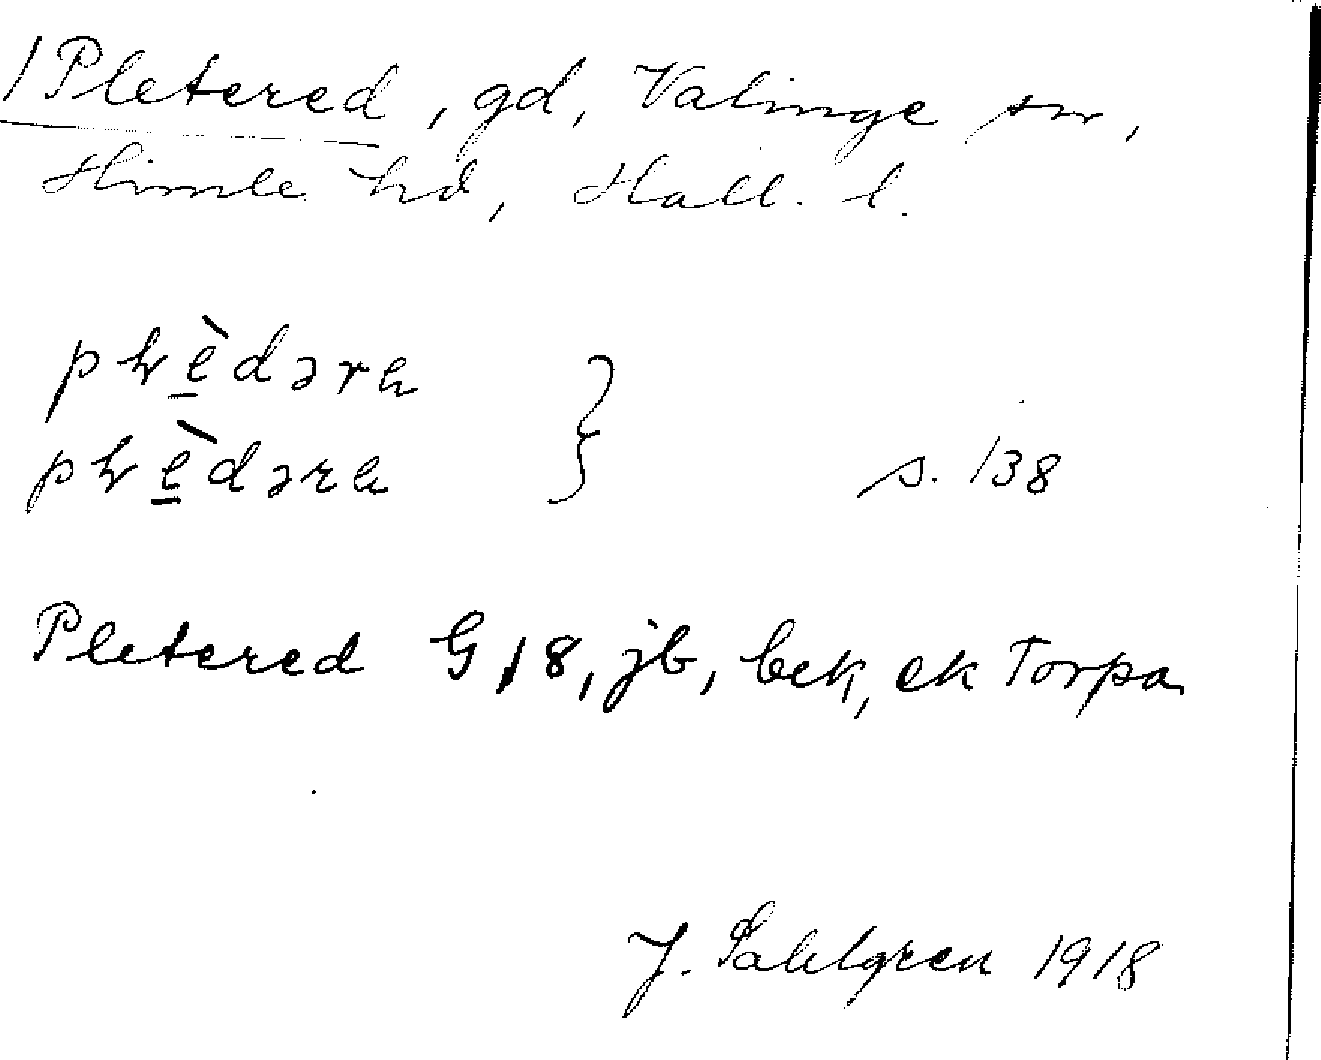 Pletered, gd, Valinge sn,
Himle hd, Hall. l.
s. 138
Pletered G 18, jb, bek, ek Torpa
J. Sahlgren 1918